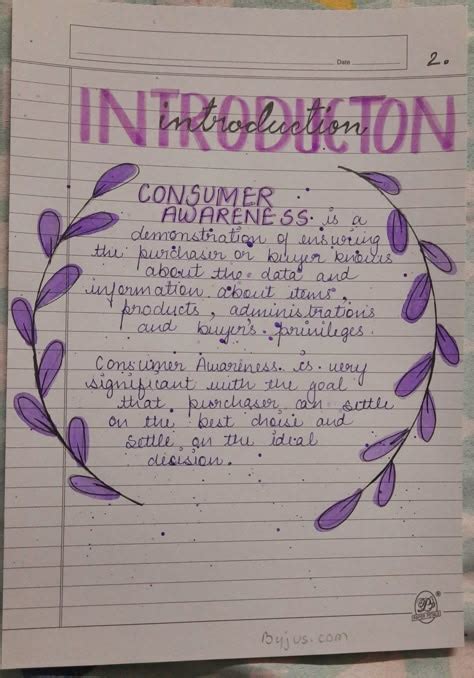 Date
2.
INTRODUCTON
introduction
CONSUMER
AWARENESS. is a
demonstration of ensuring
the purchaser or buyer knows
about the data and
information about items,
products, administrations
and buyer's privileges.
Consumer Awareness. is very
significant with the goal
that purchaser can settle
on the best choise and
settle on the ideal
decision.
Byjus.com